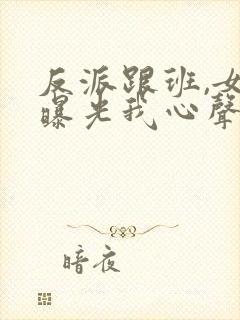 反派跟班,女
曝光我心聲
暗夜